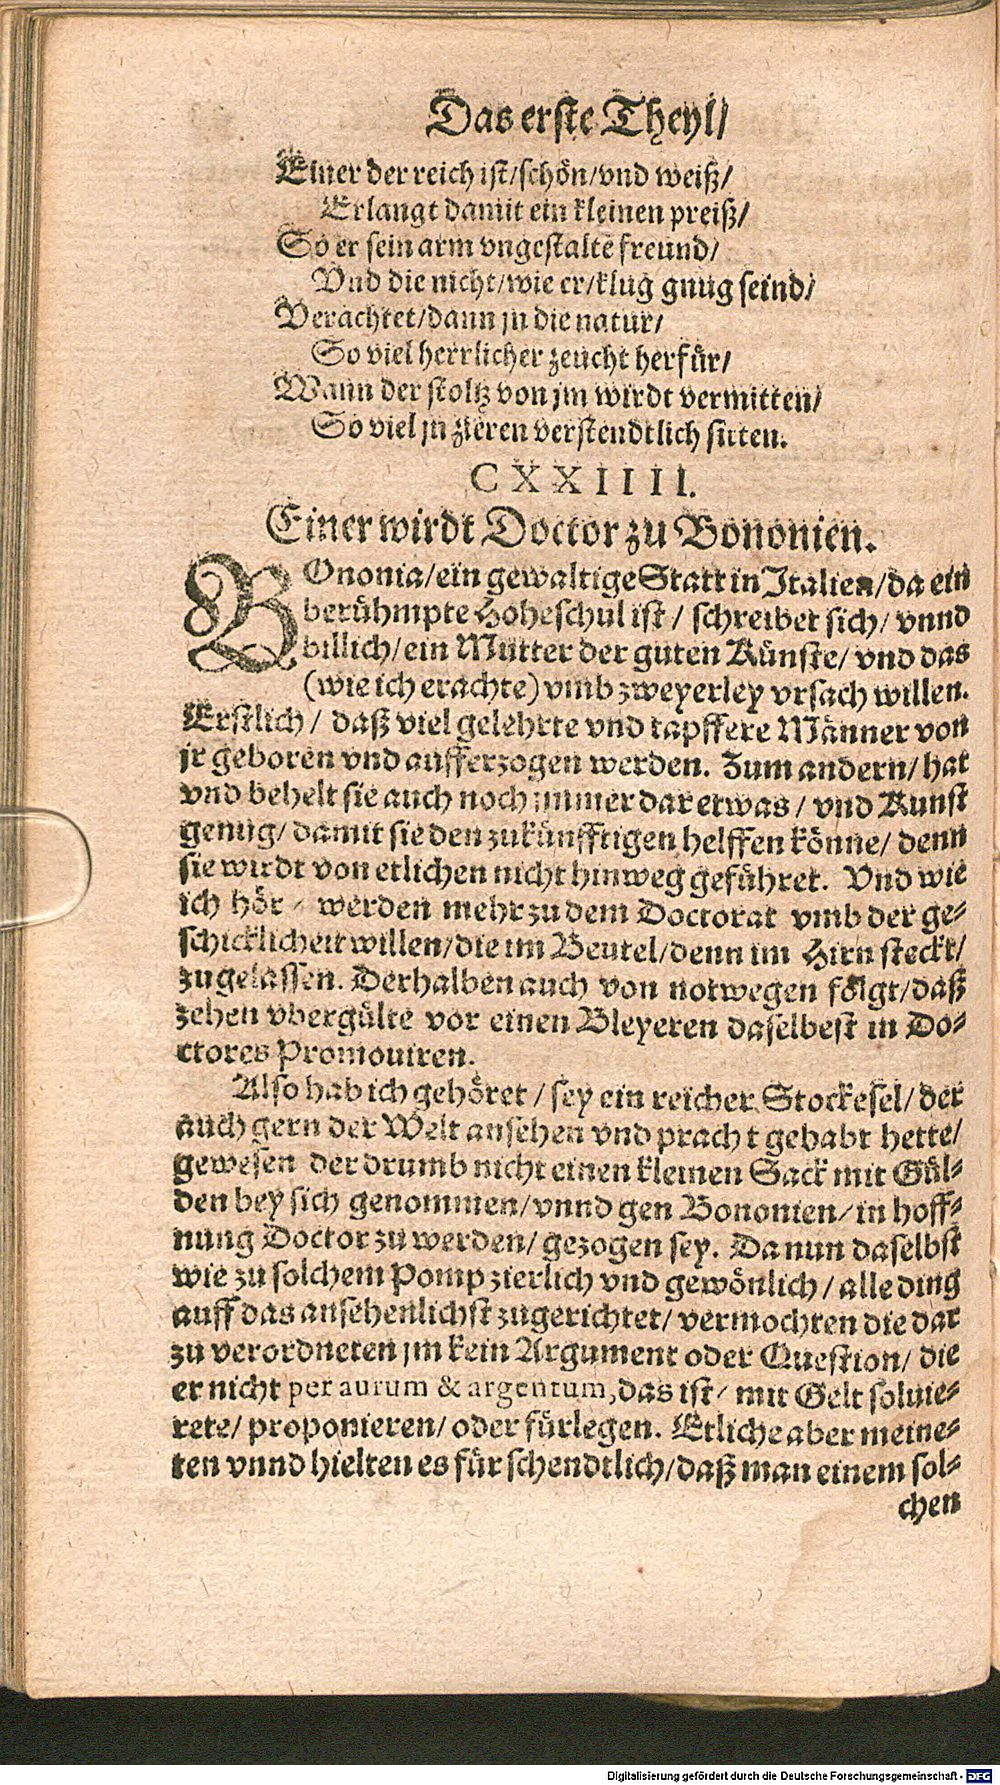 Das erste Theyl/
Einer der reich ist/schön/vnd weiß/
Erlangt damit ein kleinen preiß/
So er sein arm vngestalte freund/
Vnd die nicht/wie er/klug gnug seind/
Verachtet/dann jn die natur/
So viel herrlicher zeucht herfür/
Wann der stoltz von jm wirdt vermitten/
So viel jn zieren verstendtlich sitten.
CXXIIII.
Einer wirdt Doctor zu Bononien.
BOnonia/ein gewaltige Statt in Italien/da ein
berühmpte Hoheschul ist/ schreibet sich/ vnnd
billich/ein Mutter der guten Künste/ vnd das
(wie ich erachte) vmb zweyerley vrsach willen.
Erstlich/ daß viel gelehrte vnd tapffere Männer von
jr geboren vnd aufferzogen werden. Zum andern/ hat
vnd behelt sie auch noch jmmerdar etwas/ vnd Kunst
genug/ damit sie den zukünfftigen helffen könne/ denn
sie wirdt von etlichen nicht hinweg geführet. Vnd wie
ich hör/ werden mehr zu dem Doctorat vmb der ge-
schicklicheit willen/die im Beutel/denn im Hirn steckt/
zugelassen. Derhalben auch von notwegen folgt/daß
zehen vbergülte vor einen Bleyeren daselbest in Do-
ctores Promouiren.
Also hab ich gehöret/ sey ein reicher Stockesel/ der
auch gern der Welt ansehen vnd pracht gehabt hette/
gewesen der drumb nicht einen kleinen Sack mit Gül-
den bey sich genommen/vnnd gen Bononien/in hoff-
nung Doctor zu werden/ gezogen sey. Da nun daselbst
wie zu solchem Pomp zierlich vnd gewönlich/ alle ding
auff das ansehenlichst zugerichtet/ vermochten die dar
zu verordneten jm kein Argument oder Question/ die
er nicht per aurum & argentum, das ist/ mit Gelt soluie-
rete/ proponieren/ oder fürlegen. Etliche aber meine-
ten vnnd hielten es für schendtlich/daß man einem sol-
chen
Digitalisierung gefördert durch die Deutsche Forschungsgemeinschaft - DFG